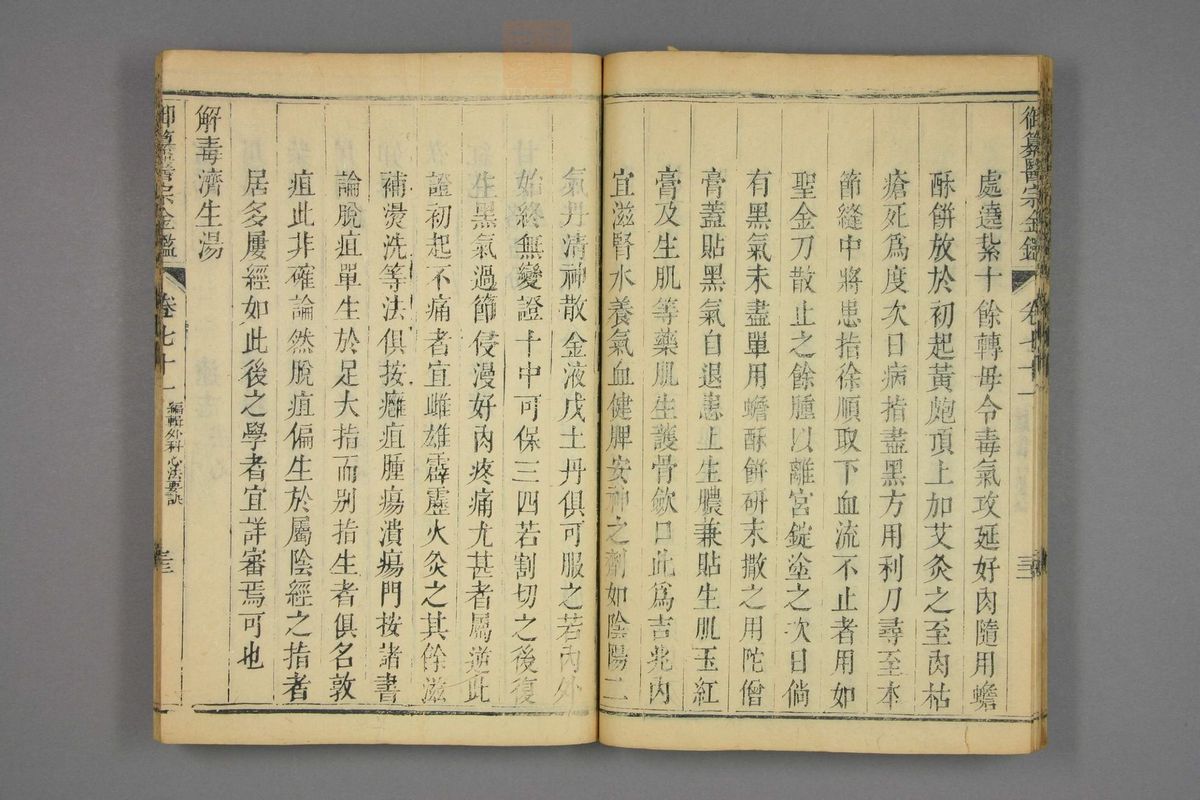 御纂醫宗金鑑 卷七十一
處遶紮十餘轉毋令毒氣攻延好肉隨用蟾
酥餅放於初起黃皰頂上加艾灸之至肉枯
瘡死爲度次日病指盡黑方用利刀尋至本
節縫中將患指徐順取下血流不止者用如
聖金刀散止之餘腫以離宮錠塗之次日倘
有黑氣未盡單用蟾酥餅研末撒之用陀僧
膏蓋貼黑氣自退患上生膿兼貼生肌玉紅
膏及生肌等藥肌生護骨斂口此爲吉兆內
宜滋腎水養氣血健脾安神之劑如陰陽二
氣丹清神散金液戊土丹俱可服之若內外
始終無變證十中可保三四若割切之後復
生黑氣過節侵漫好肉疼痛尤甚者屬逆此
證初起不痛者宜雌雄霹靂火灸之其餘滋
補燙洗等法俱按癰疽腫瘍潰瘍門按諸書
論脫疽單生於足大指而別指生者俱名敦
疽此非確論然脫疽偏生於屬陰經之指者
居多屢經如此後之學者宜詳審焉可也
解毒濟生湯
御纂醫宗金鑑 卷七十一 編輯外科心法要訣 三三